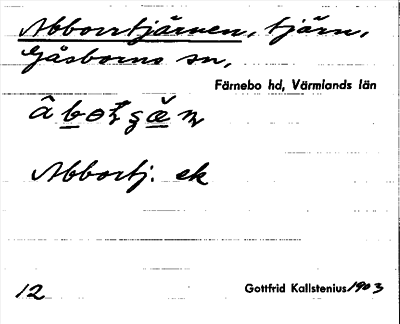 Abborrtjärnen, tjärn,
Gåsborns sn,
Färnebo hd, Värmlands län
Abbortj: ek
12 Gottfrid Kallstenius 1903